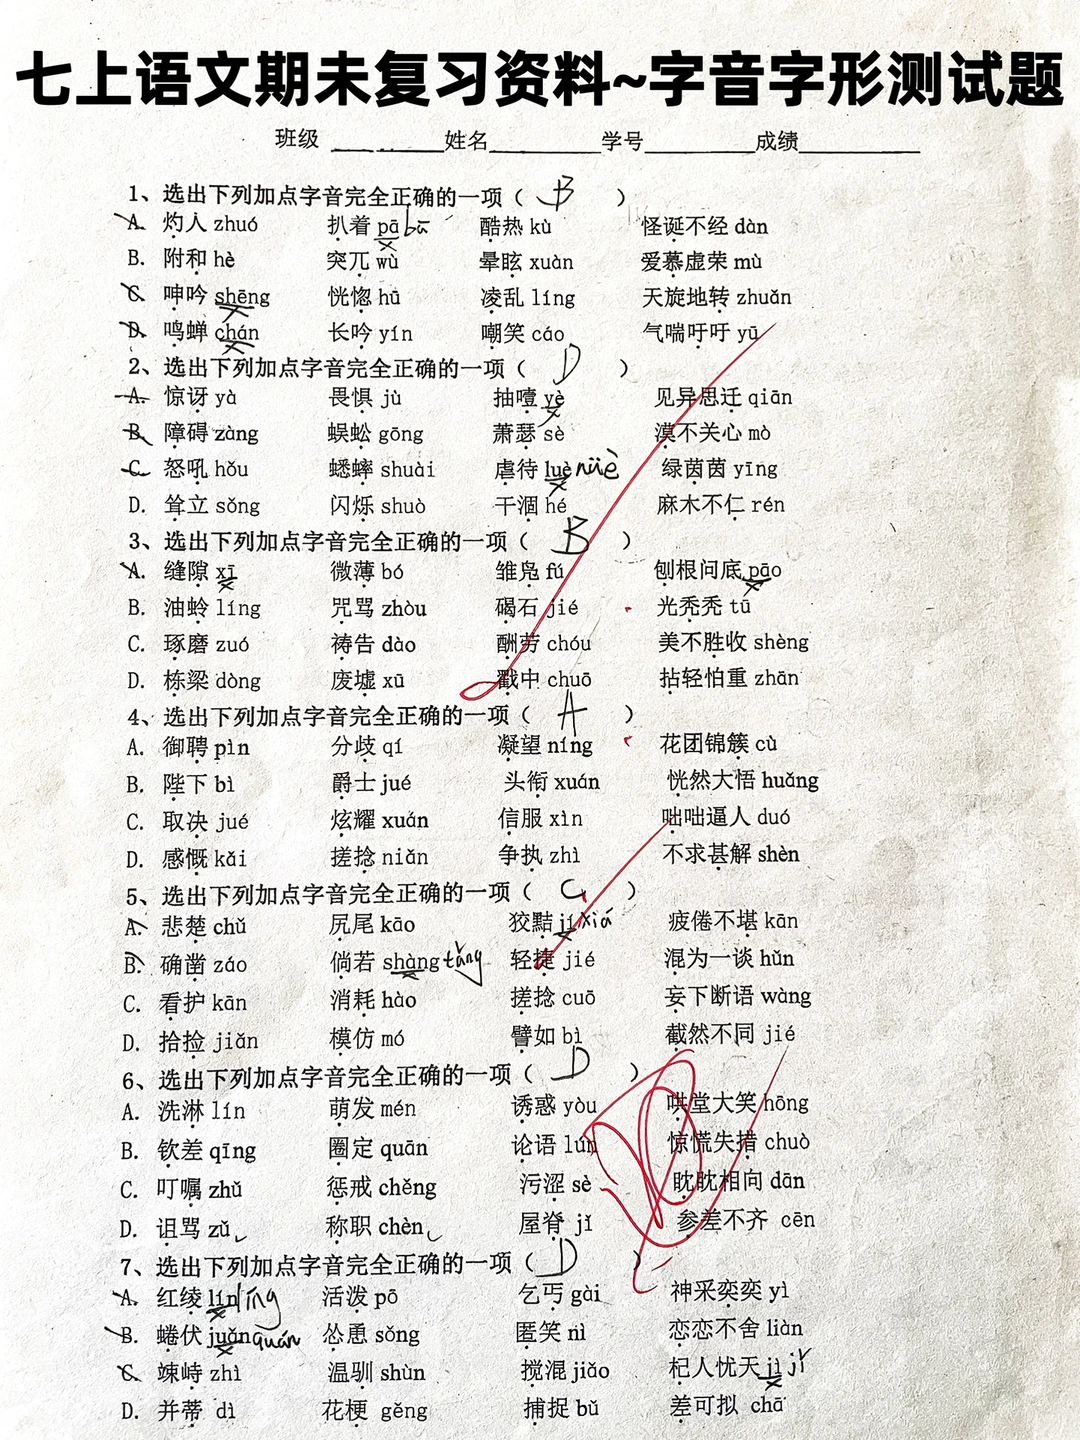 七上语文期未复习资料~字音字形测试题
班级 ________姓名________学号________成绩________
1、选出下列加点字音完全正确的一项（ B ）
A. 灼人 zhuó 扒着 pā bā 酷热 kù 怪诞不经 dàn
B. 附和 hè 突兀 wù 晕眩 xuàn 爱慕虚荣 mù
C. 呻吟 shēng 恍惚 hū 凌乱 líng 天旋地转 zhuǎn
D. 鸣蝉 chán 长吟 yín 嘲笑 cáo 气喘吁吁 yū
2、选出下列加点字音完全正确的一项（ D ）
A. 惊讶 yà 畏惧 jù 抽噎 yè 见异思迁 qiān
B. 障碍 zàng 蜈蚣 gōng 萧瑟 sè 漠不关心 mò
C. 怒吼 hǒu 蟋蟀 shuài 虐待 luè nüè 绿茵茵 yīng
D. 耸立 sǒng 闪烁 shuò 干涸 hé 麻木不仁 rén
3、选出下列加点字音完全正确的一项（ B ）
A. 缝隙 xī 微薄 bó 雏凫 fú 刨根问底 pāo
B. 油蛉 líng 咒骂 zhòu 碣石 jié 光秃秃 tū
C. 琢磨 zuó 祷告 dào 酬劳 chóu 美不胜收 shèng
D. 栋梁 dòng 废墟 xū 戳中 chuō 拈轻怕重 zhān
4、选出下列加点字音完全正确的一项（ A ）
A. 御聘 pìn 分歧 qí 凝望 níng 花团锦簇 cù
B. 陛下 bì 爵士 jué 头衔 xuán 恍然大悟 huǎng
C. 取决 jué 炫耀 xuán 信服 xìn 咄咄逼人 duó
D. 感慨 kǎi 搓捻 niǎn 争执 zhì 不求甚解 shèn
5、选出下列加点字音完全正确的一项（ C ）
A. 悲楚 chǔ 尻尾 kāo 狡黠 jí xiá 疲倦不堪 kān
B. 确凿 záo 倘若 shàng tǎng 轻捷 jié 混为一谈 hǔn
C. 看护 kān 消耗 hào 搓捻 cuō 妄下断语 wàng
D. 拾捡 jiǎn 模仿 mó 譬如 bì 截然不同 jié
6、选出下列加点字音完全正确的一项（ D ）
A. 洗淋 lín 萌发 mén 诱惑 yòu 哄堂大笑 hōng
B. 钦差 qīng 圈定 quān 论语 lún 惊慌失措 chuò
C. 叮嘱 zhǔ 惩戒 chěng 污涩 sè 眈眈相向 dān
D. 诅骂 zǔ 称职 chèn 屋脊 jǐ 参差不齐 cēn
7、选出下列加点字音完全正确的一项（ D ）
A. 红绫 lín líng 活泼 pō 乞丐 gài 神采奕奕 yì
B. 蜷伏 juǎn quán 怂恿 sǒng 匿笑 nì 恋恋不舍 liàn
C. 竦峙 zhì 温驯 shùn 搅混 jiǎo 杞人忧天 jì jǐ
D. 并蒂 dì 花梗 gěng 捕捉 bǔ 差可拟 chā